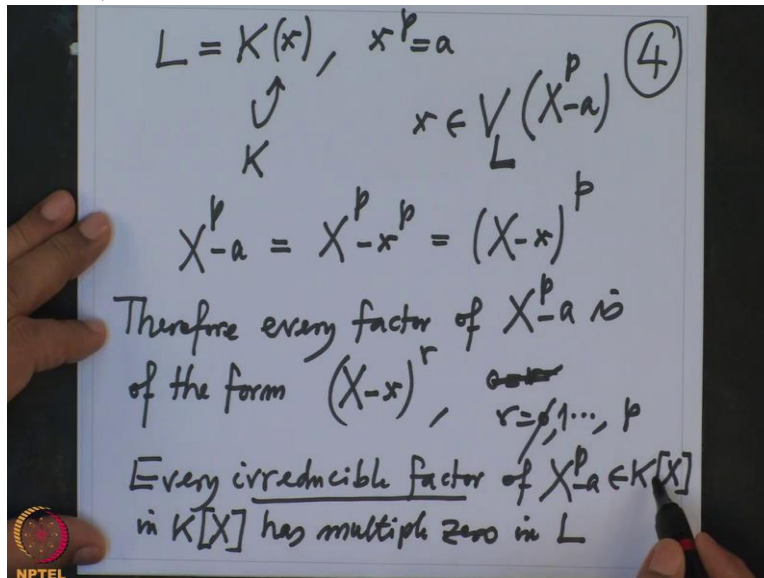 L = K(x), x^p = a
④
K
x ∈ V_L (X^p - a)
X^p - a = X^p - x^p = (X - x)^p
Therefore every factor of X^p - a is
of the form (X - x)^r,
r = 1, ..., p
Every irreducible factor of X^p - a ∈ K[X]
in K[X] has multiple zero in L
NPTEL